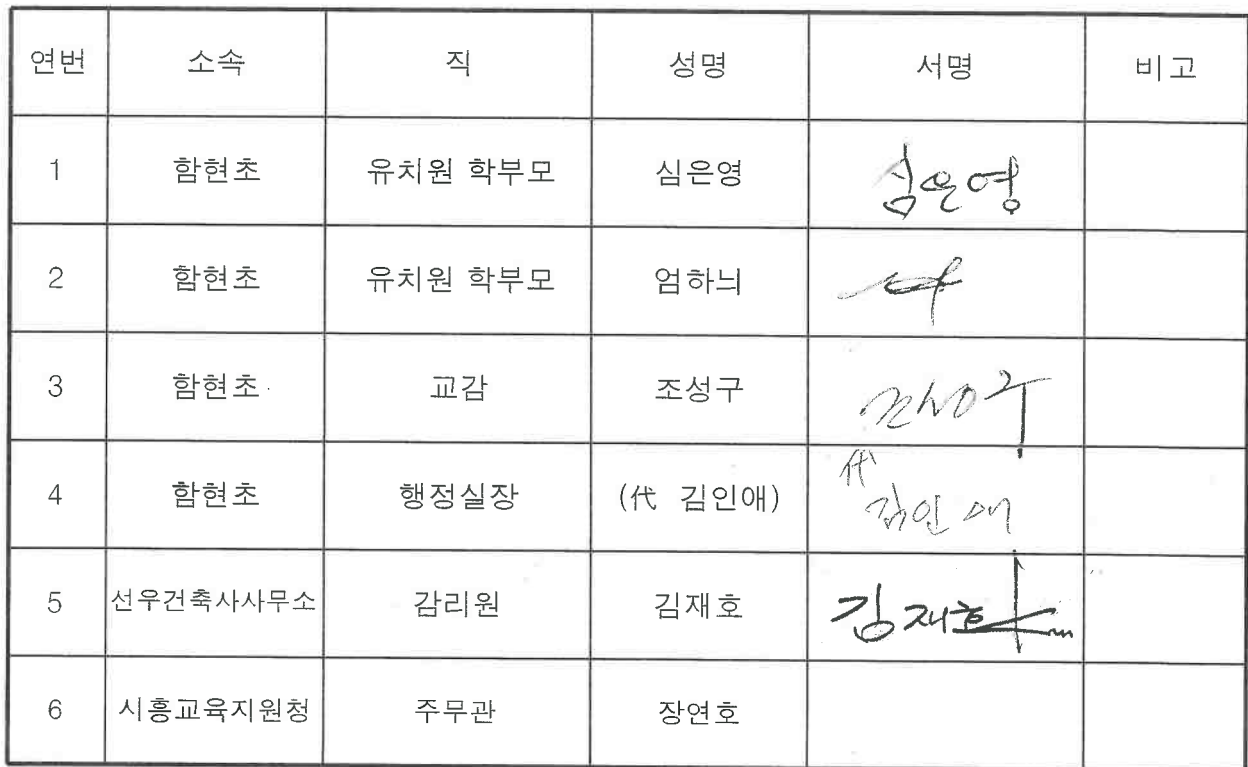 연번 소속 직 성명 서명 비고
1 함현초 유치원 학부모 심은영 심은영
2 함현초 유치원 학부모 엄하늬
3 함현초 교감 조성구 조성구
4 함현초 행정실장 (代 김인애) 代 김인애
5 선우건축사사무소 감리원 김재호 김재호
6 시흥교육지원청 주무관 장연호